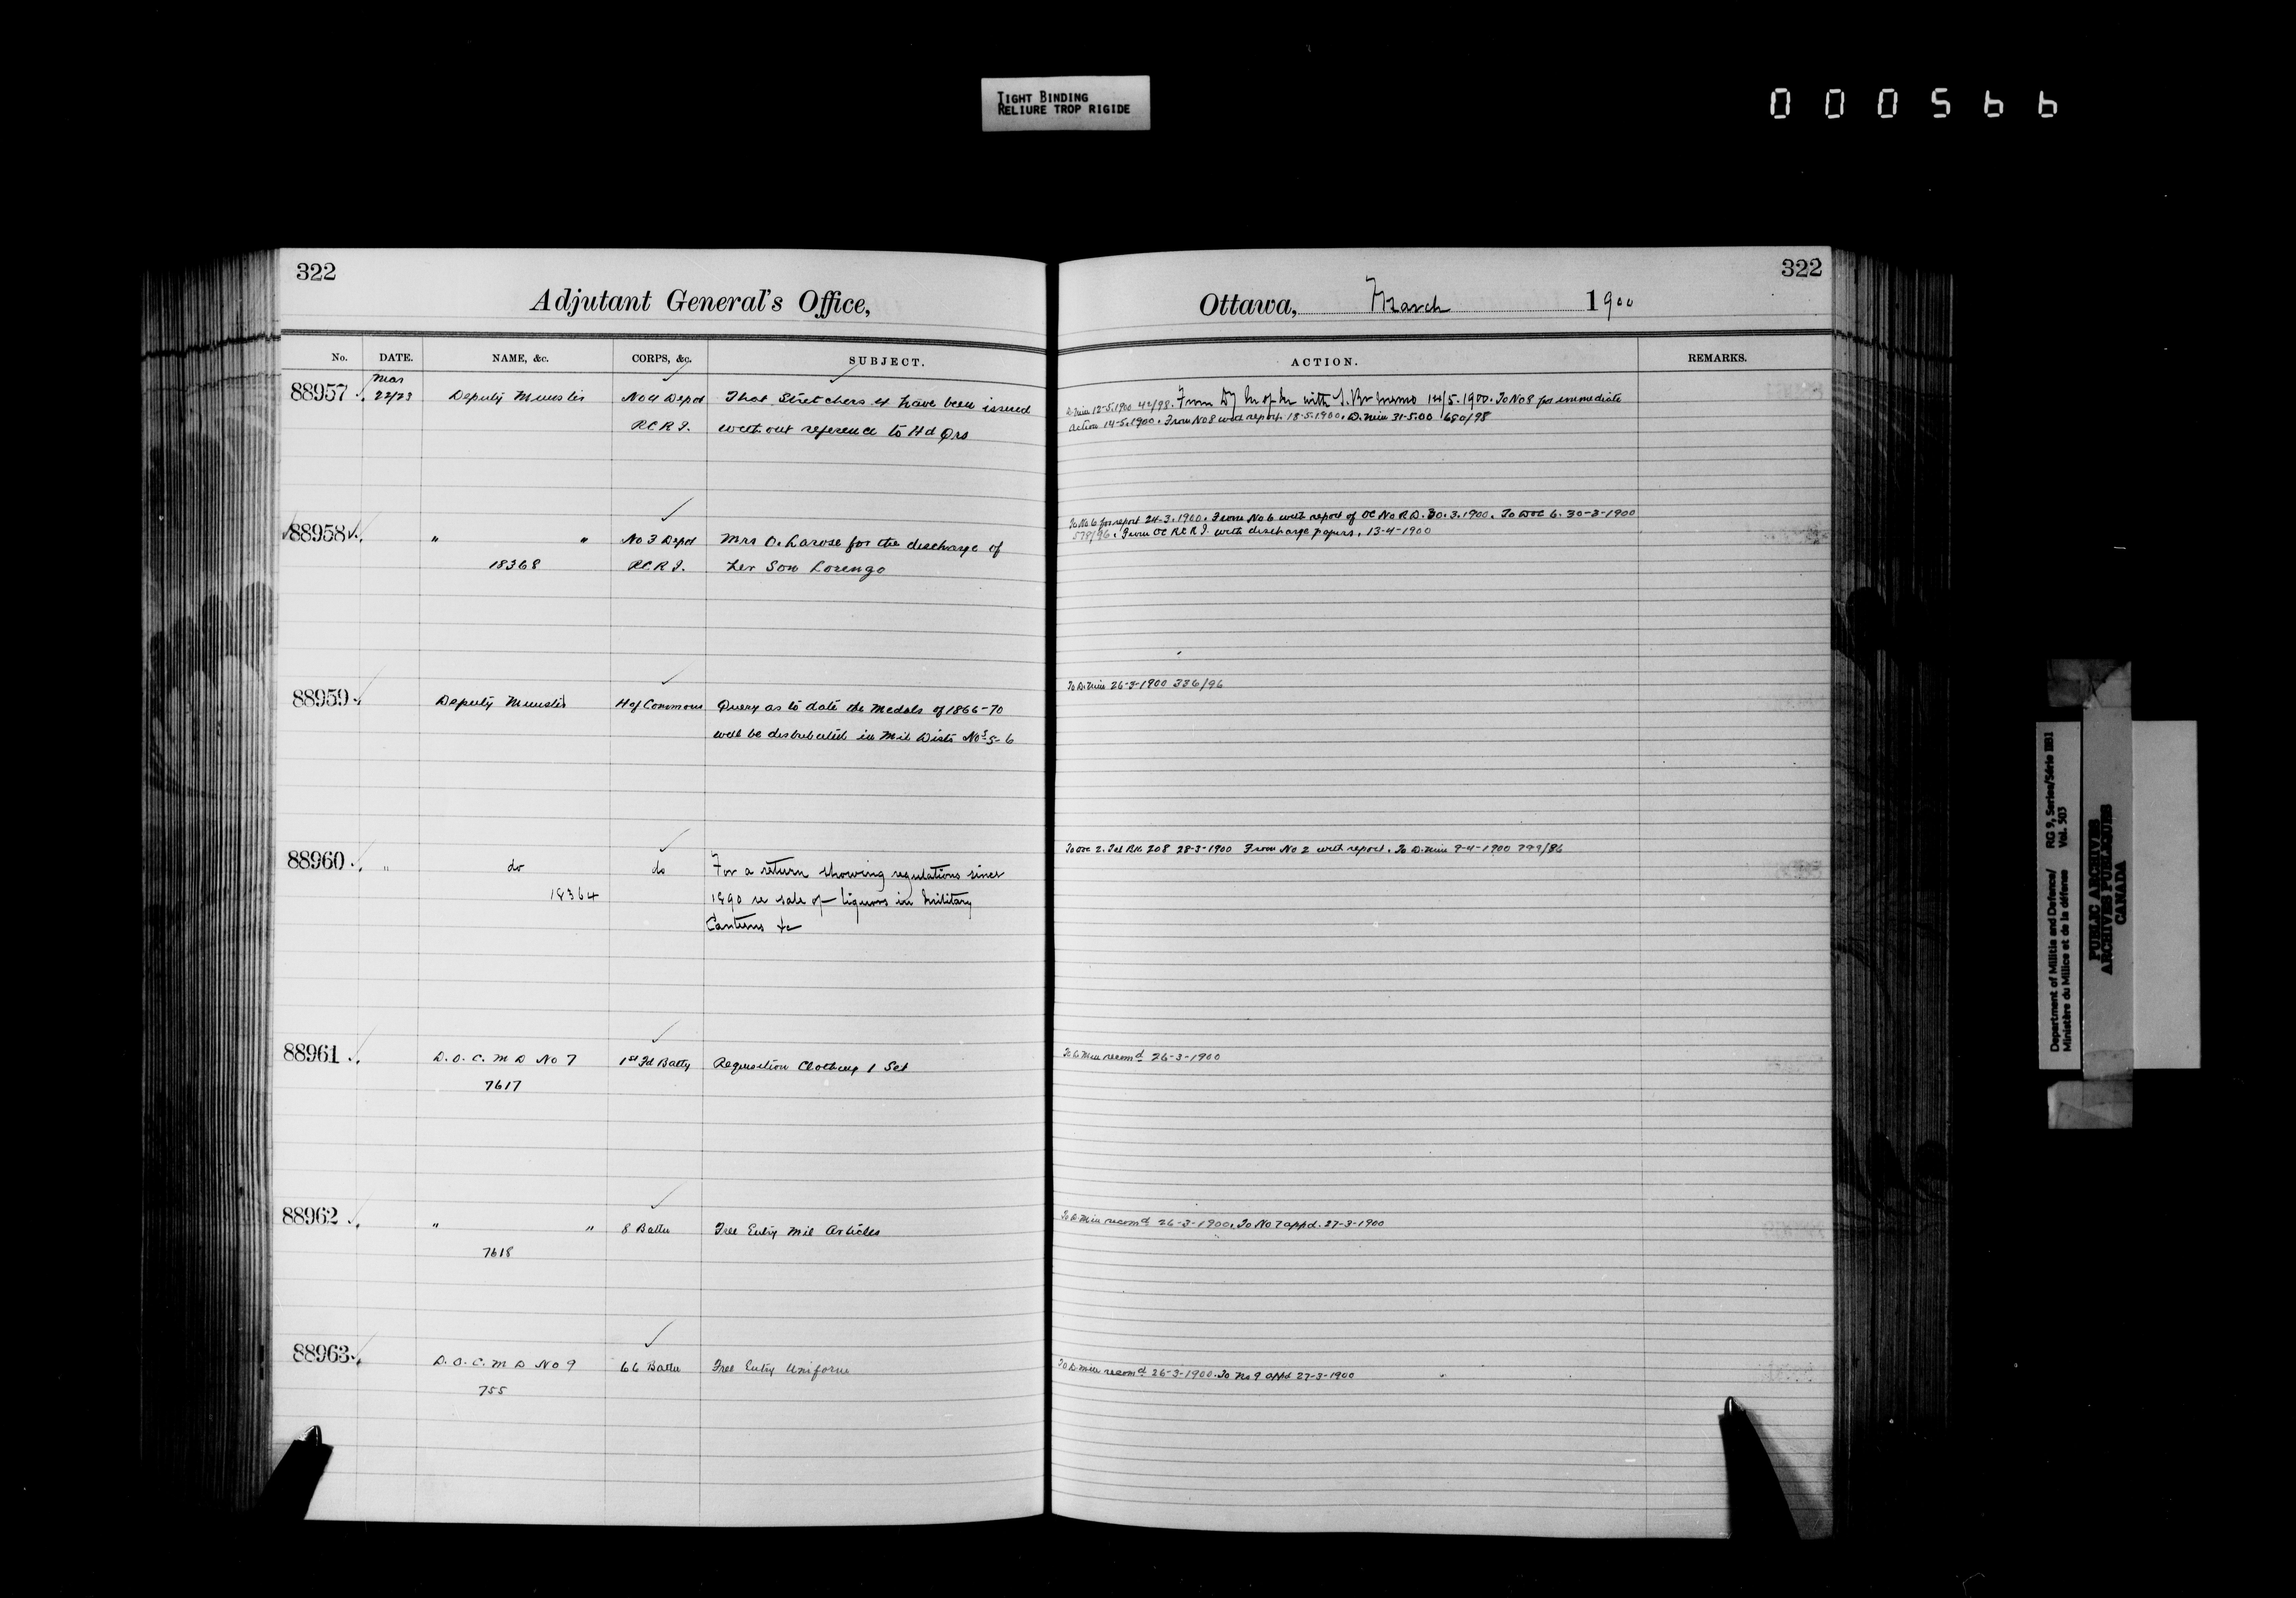 TIGHT BINDING
RELIURE TROP RIGIDE
000566
322
Adjutant General's Office,
No. DATE. NAME, &c. CORPS, &c. SUBJECT.
Mar
88957 22/23 Deputy Minister No 4 Depot That Stretchers 4 have been issued
R.C.R.I. without reference to Hd Qrs
88958 " " No 3 Depot Mrs O. Larose for the discharge of
18368 R.C.R.I. her Son Lorengo
88959 Deputy Minister H of Commons Query as to date the Medals of 1866-70
will be distributed in Mil Dists Nos 5-6
88960 " do do For a return showing regulations since
18364 1890 re sale of liquors in Military
Canteens &c
88961 D.O.C. M D No 7 1st Fd Batty Requisition Clothing 1 Set
7617
88962 " " 8 Battn Free Entry Mil Articles
7618
88963 D.O.C. M D No 9 66 Battn Free Entry Uniform
755
322
Ottawa, March 1900
ACTION. REMARKS.
D. Min 12-5-1900 42/98. From Dy M of M with memo 12/5.1900. To No 8 for immediate
action 14-5-1900. From No 8 with report. 18-5-1900. D. Min 31-5-00 650/98
To No 6 for report 24-3-1900. From No 6 with report of OC No R D. 30.3.1900. To DOC 6. 30-3-1900
578/96. From OC RCRI with discharge papers. 13-4-1900
To D. Min 26-3-1900 336/96
To DOC 2. Tel Bk 208 28-3-1900 From No 2 with report. To D. Min 9-4-1900 799/86
To D Min recomd 26-3-1900
To D Min recomd 26-3-1900. To No 7 appd. 27-3-1900
To D. Min recomd 26-3-1900. To No 9 appd 27-3-1900
Department of Militia and Defence/ RG 9, Series/Série IIB1
Ministère du Milice et de la défense Vol. 503
PUBLIC ARCHIVES
ARCHIVES PUBLIQUES
CANADA